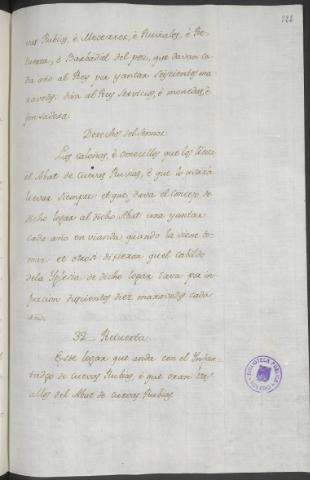 122
vas Rubias, è Mecerrex, è Puentes, è Re-
tuerta, è Barbadiel del pex, que davan ca-
da año al Rey por yantar seiscientos ma-
ravedis: dan al Rey Servicios, è monedas, è
fonsadera.
Derechos del Señor
Las caloñas, è omecillos que los lieva
el Abat de Cuevas Ruvias, è que lo usará
levar siempre: et que dava el Concejo de
dicho logar al dicho Abat una yantar
cada año en vianda quando la viene to-
mar et otrosi dixeron quel cabildo
dela Iglesia de dicho logar dava pa in-
furcion doscientos diez maravedis cada
año.
32_ Retuerta.
Este logar que anda con el Infan-
tadgo de cuevas Rubias, è que eran vas-
allos del Abat de cuevas Rubias
BIBLIOTECA PUBLICA
TOLEDO